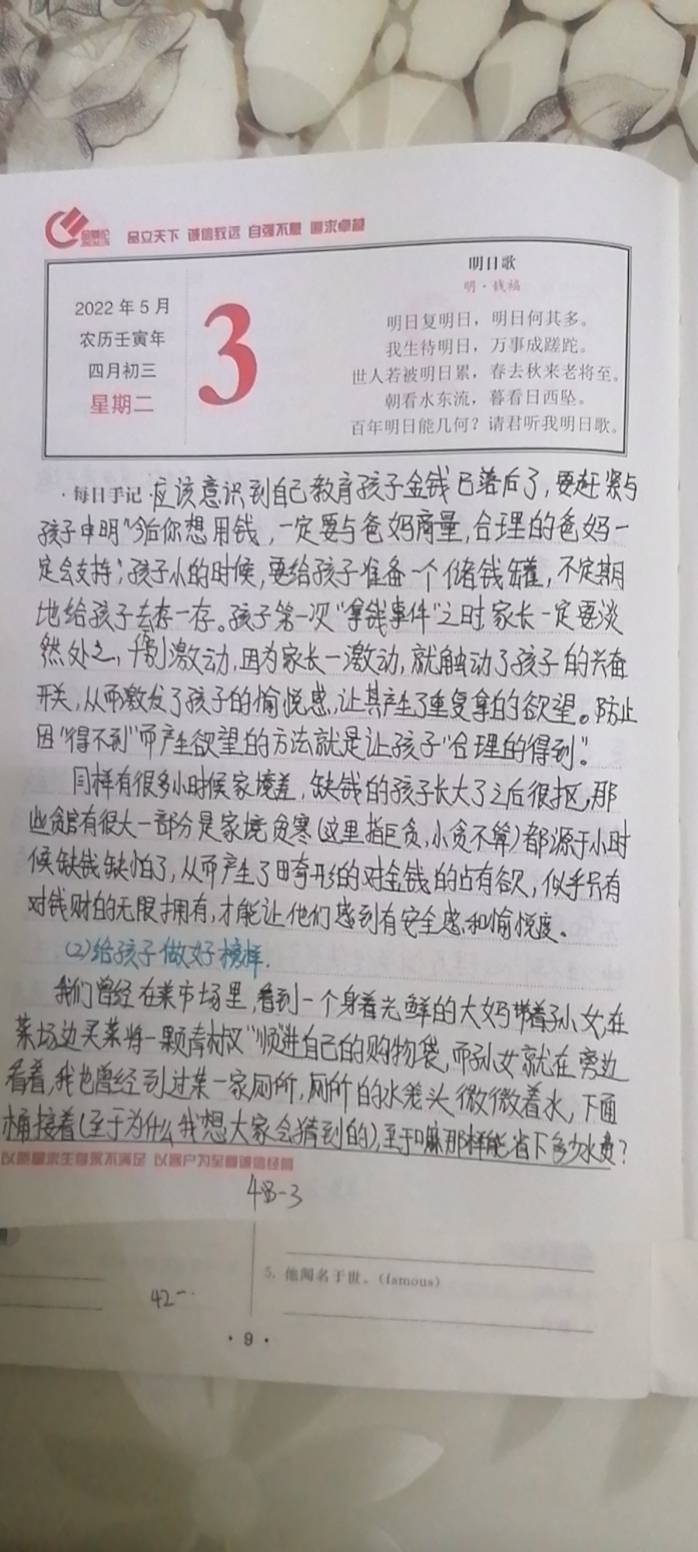 品立天下 诚信致远 自强不息 追求卓越
2022 年 5 月
农历壬寅年
四月初三
星期二
3
明日歌
明·钱福
明日复明日，明日何其多。
我生待明日，万事成蹉跎。
世人若被明日累，春去秋来老将至。
朝看水东流，暮看日西坠。
百年明日能几何？请君听我明日歌。
·每日手记·应该意识到自己教育孩子金钱已落后了，要赶紧与
孩子申明“今后你想用钱，一定要与爸妈商量，合理的爸妈一
定会支持；孩子小的时候，要给孩子准备一个储钱罐，不定期
地给孩子去存一存。孩子第一次“拿钱事件”之时家长一定要淡
然处之，千万别激动，因为家长一激动，就触动了孩子的兴奋
开关，从而激发了孩子的愉悦感，让其产生了重复拿的欲望。防止
因“得不到”而产生欲望的方法就是让孩子“合理的得到”。
同样有很多小时候家境差，缺钱的孩子长大了之后很抠，那
些贪官有很大一部分是家境贫寒(这里指巨贪，小贪不算)都源于小时
候缺钱缺怕了，从而产生了畸形的对金钱的占有欲，似乎只有
对钱财的无限拥有，才能让他们感到有安全感和愉悦度。
(2)给孩子做好榜样.
我们曾经在菜市场里，看到一个身着光鲜的大妈带着孙女，在
菜场边买菜将一颗青椒“顺进自己的购物袋，而孙女就在旁边
看着，我也曾经到过某一家厕所，厕所的水笼头微微着水，下面
桶接着(至于为什么我想大家会猜到的)，至于嘛那样能省下多少水费？
以质量求生存永不满足 以客户为至尊诚信经营
48-3
5. 他闻名于世。(famous)
42-
· 9 ·